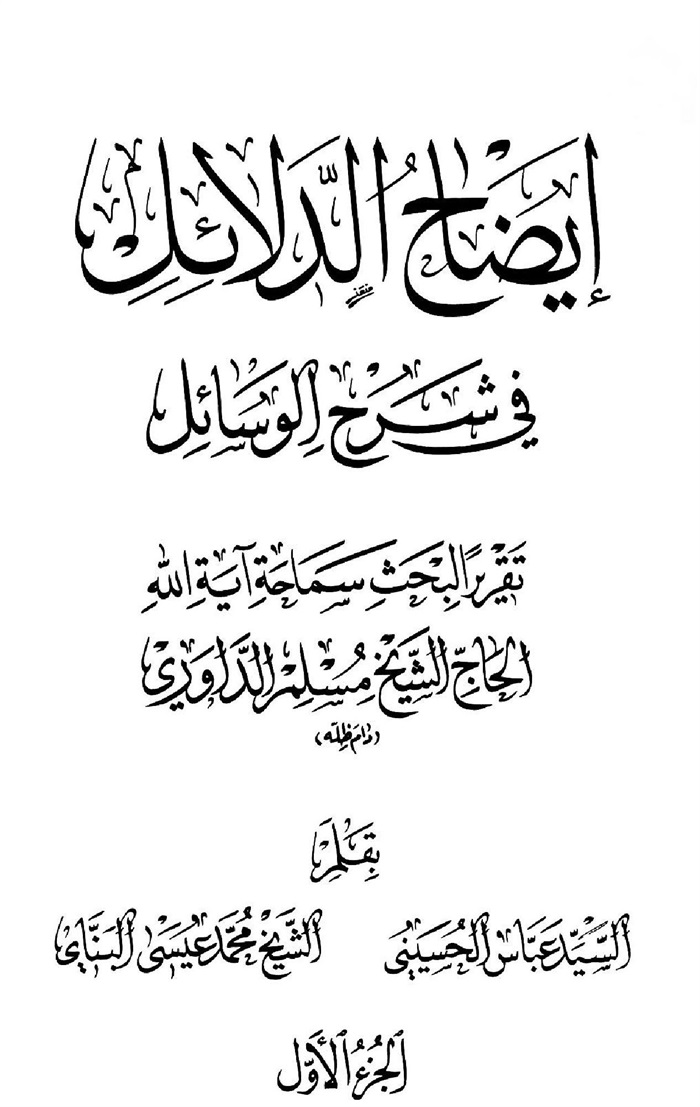 إيضاح الدّلائل
في شرح الوسائل
تقريرًا لبحث سماحة آية الله
الحاجّ الشّيخ مسلم الدّاوري
(دام ظلّه)
بقلم
السّيّد عبّاس الحسيني الشّيخ محمّد عيسى البنّاي
الجزء الأوّل